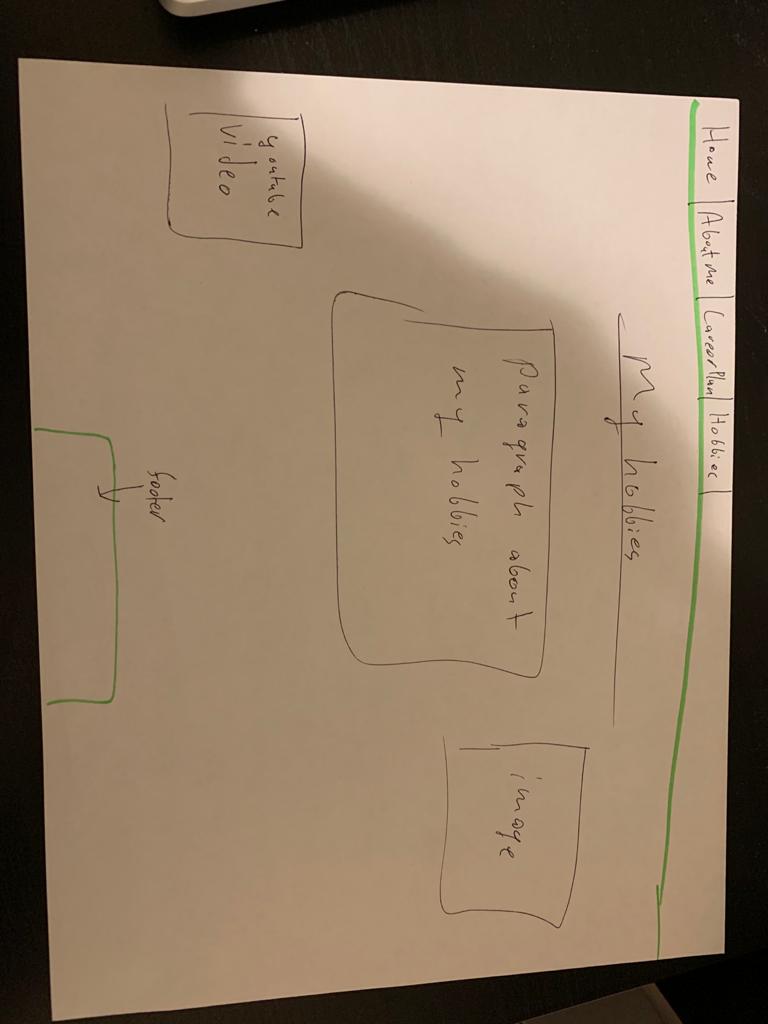 Home | About me | Career Plan | Hobbies |
My hobbies
paragraph about
my hobbies
image
youtube
video
footer